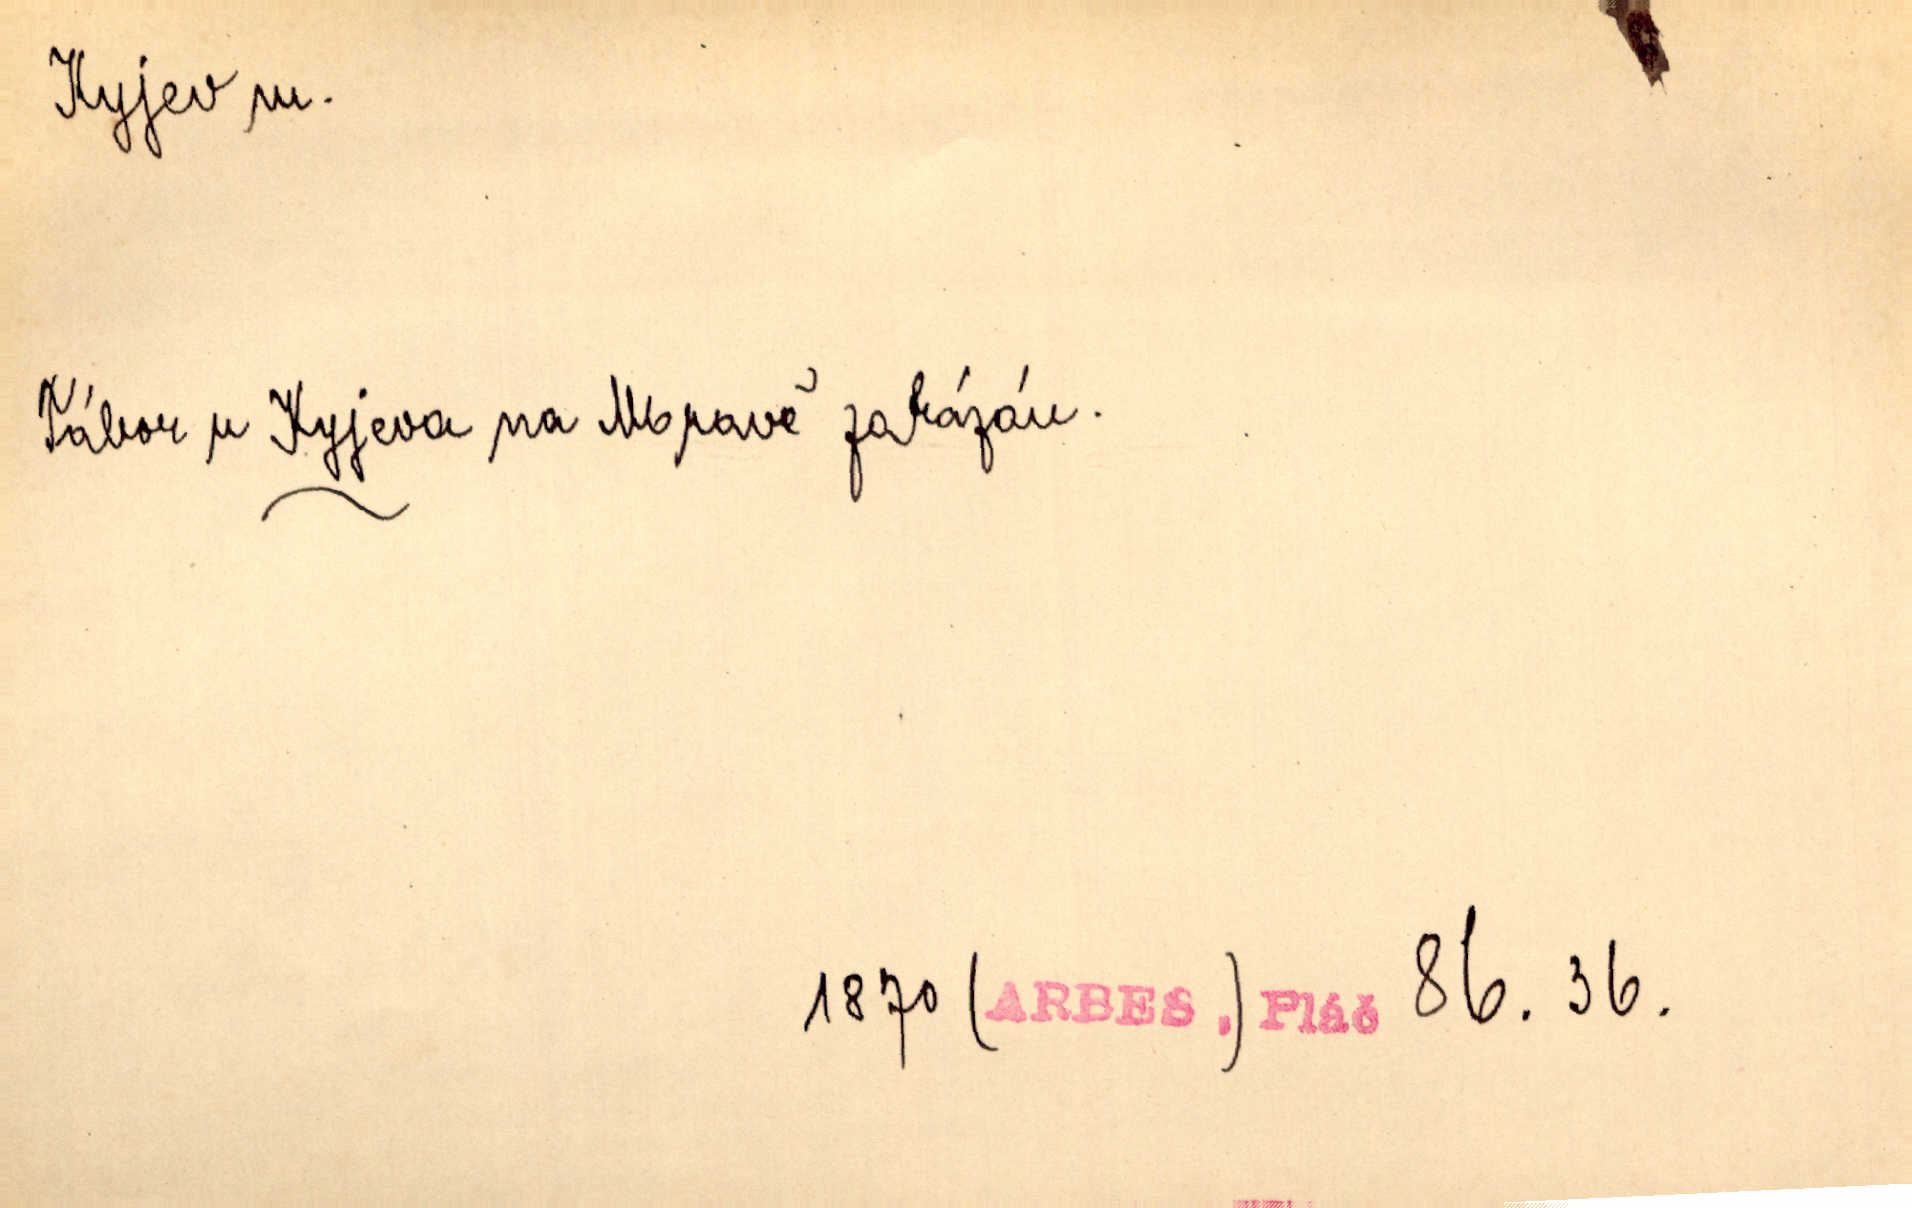 Kyjev m.
Tábor u Kyjeva na Moravě zakázán.
1870 (ARBES.) Pláč 86. 36.